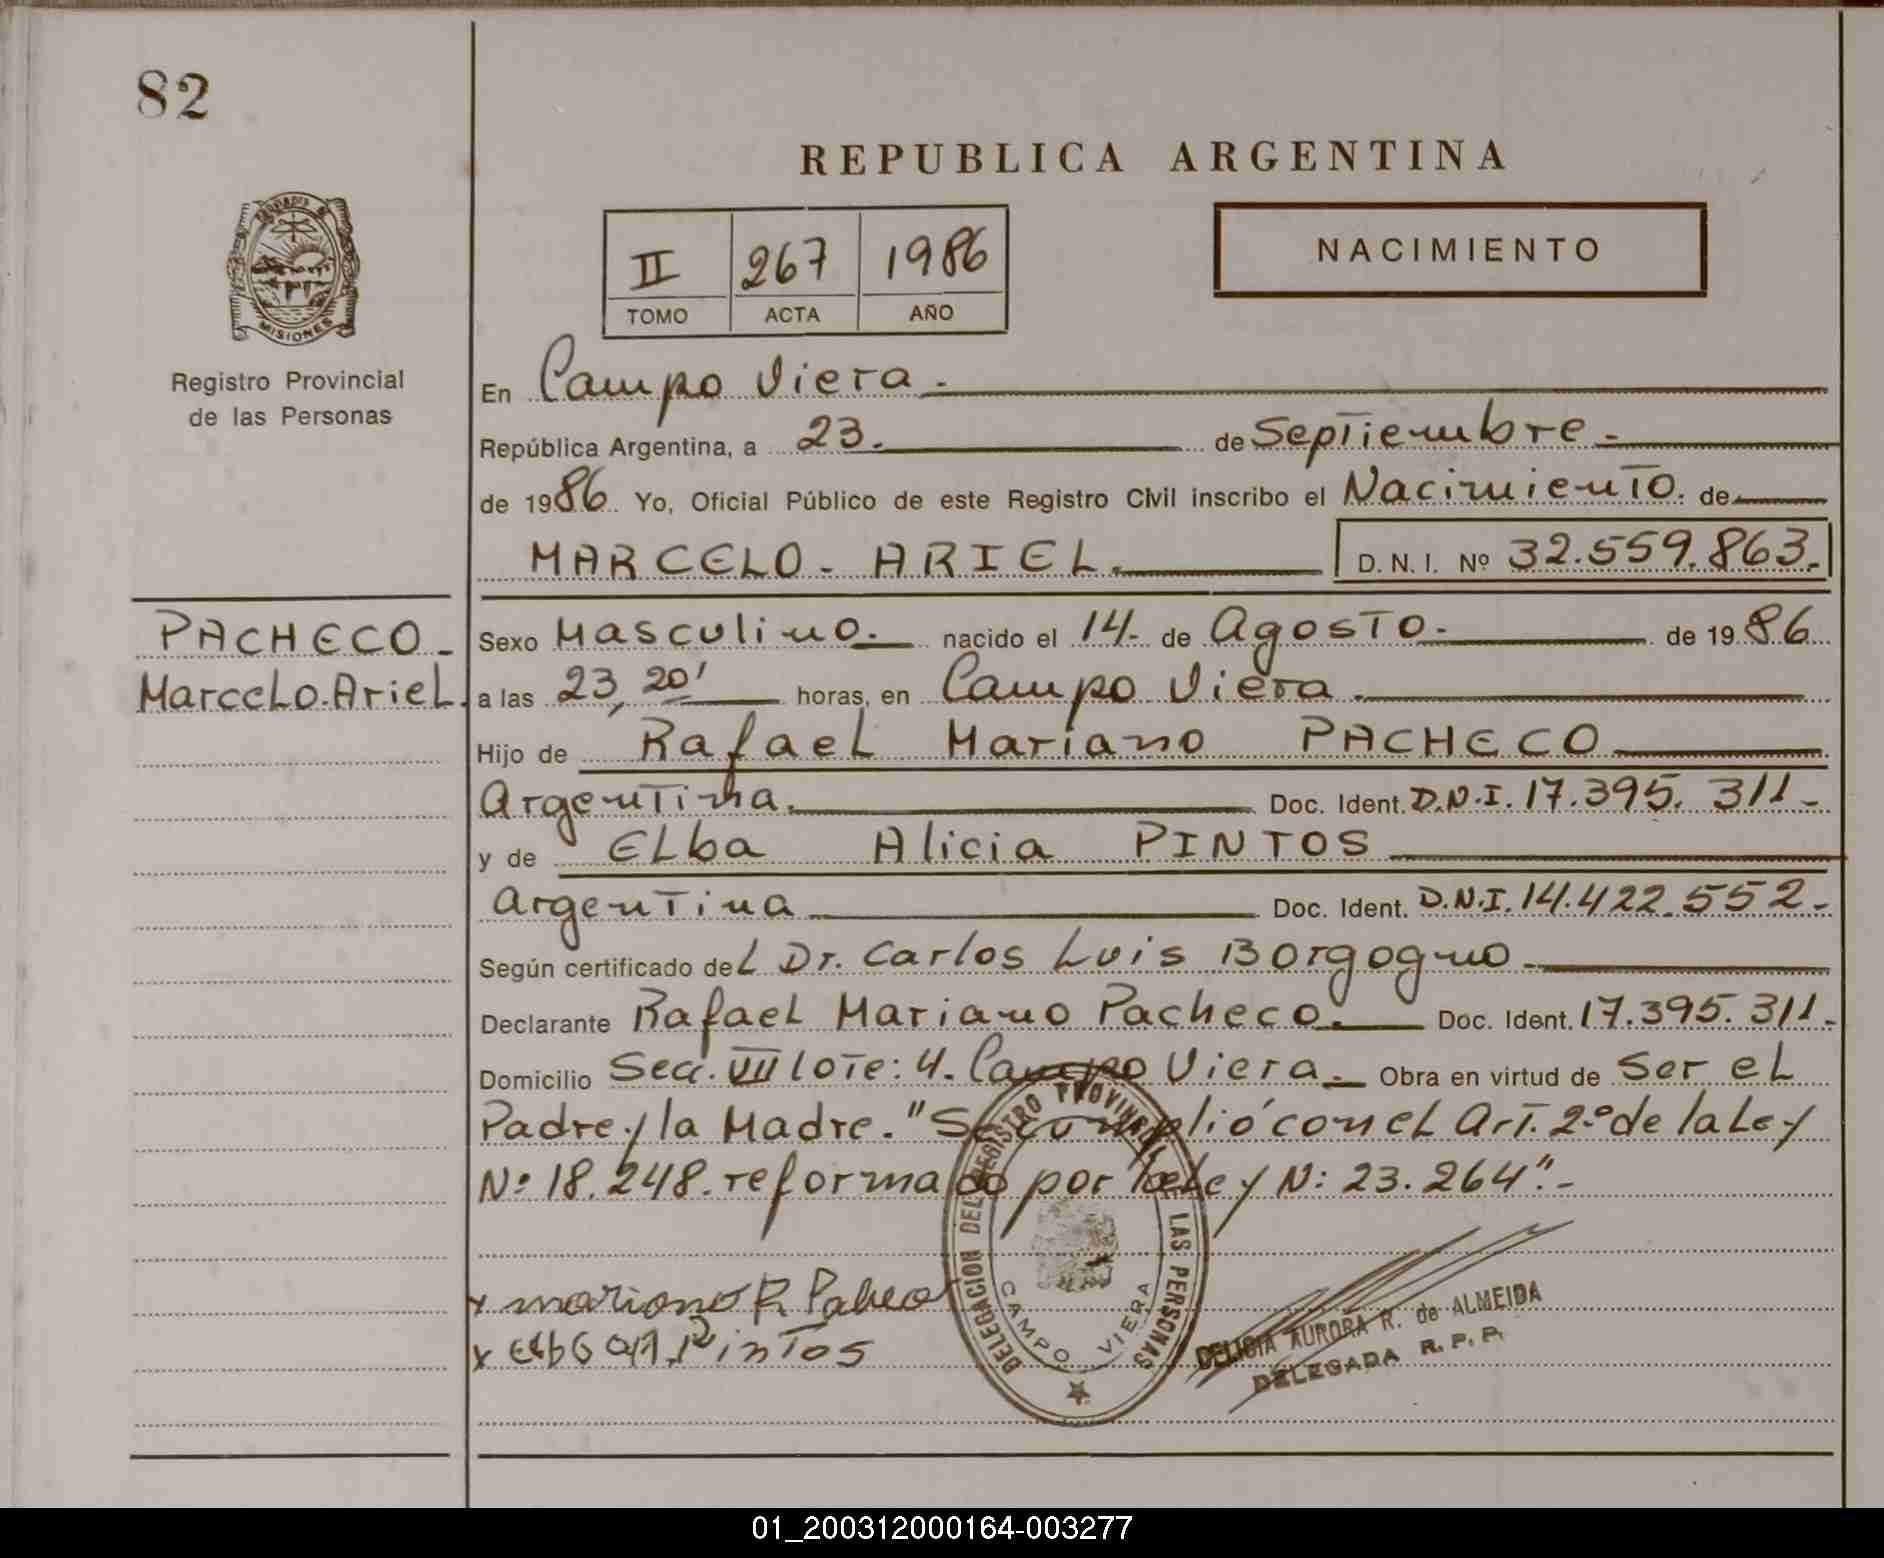 82
REPUBLICA ARGENTINA
II 267 1986
TOMO ACTA AÑO
NACIMIENTO
MISIONES
Registro Provincial
de las Personas
En Campo Viera.
República Argentina, a 23. de Septiembre.
de 1986. Yo, Oficial Público de este Registro Civil inscribo el Nacimiento. de
MARCELO. ARIEL. D. N. I. Nº 32.559.863.
PACHECO.
Marcelo.Ariel.
Sexo Masculino. nacido el 14. de Agosto. de 1986
a las 23, 20' horas, en Campo Viera.
Hijo de Rafael Mariano PACHECO
Argentina. Doc. Ident. D.N.I. 17.395.311.
y de Elba Alicia PINTOS
Argentina Doc. Ident. D.N.I. 14.422.552.
Según certificado del Dr. Carlos Luis Borgogno.
Declarante Rafael Mariano Pacheco. Doc. Ident. 17.395.311.
Domicilio Secc. VII lote: 4. Campo Viera. Obra en virtud de Ser el
Padre y la Madre. "Se cumplió con el Art. 2º de la Ley
Nº 18.248. reformado por la Ley N: 23.264".-
DELEGACION DEL REGISTRO PROVINCIAL DE LAS PERSONAS
CAMPO VIERA
x mariano R. Paheco
x Pintos
DELICIA AURORA R. de ALMEIDA
DELEGADA R. P. P.
01_200312000164-003277